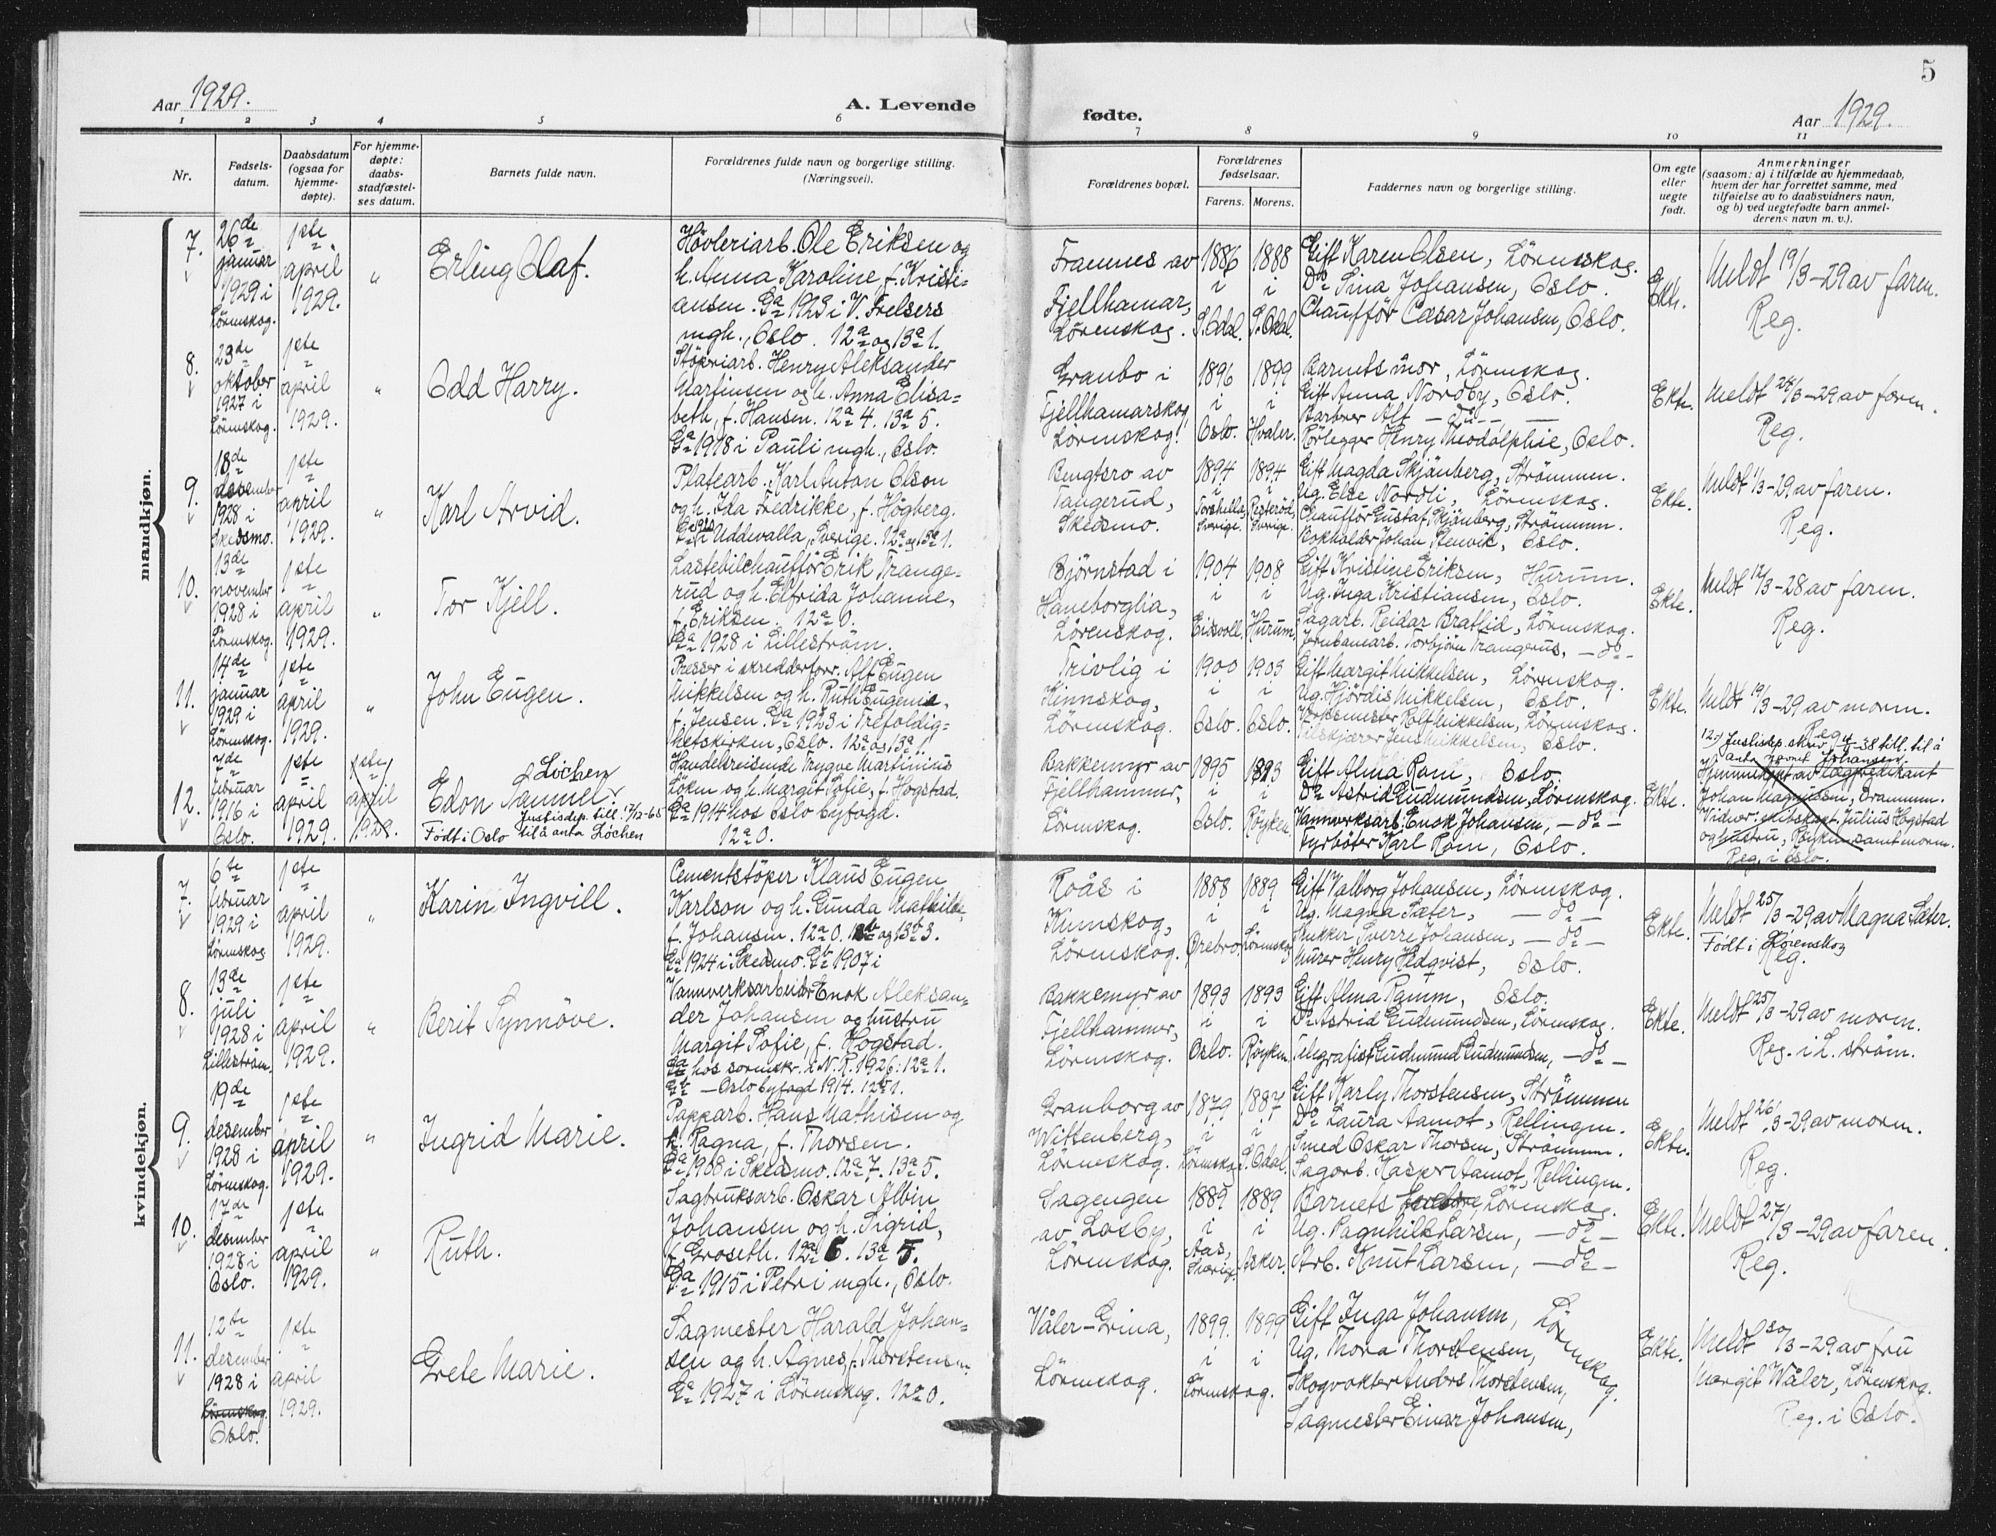 Aar 1929.
A. Levende
fødte.
Aar 1929.
5
1 2 3 4 5 6 7 8 9 10 11
Nr.
Fødsels-
datum.
Daabsdatum
(ogsaa for
hjemme-
døpte).
For hjemme-
døpte:
daabs-
stadfæstel-
ses datum.
Barnets fulde navn.
Forældrenes fulde navn og borgerlige stilling.
(Næringsvei).
Forældrenes bopæl.
Forældrenes
fødselsaar.
Farens. Morens.
Faddernes navn og borgerlige stilling.
Om egte
eller
uegte
født.
Anmerkninger
(saasom: a) i tilfælde av hjemmedaab,
hvem der har forrettet samme, med
tilføielse av to daabsvidners navn,
og b) ved uegtefødte barn anmel-
derens navn m. v.).
mandkjøn.
7.
26de
januar
1929 i
Lörenskog.
1ste
april
1929.
"
Erling Olaf.
Hövleriarb. Ole Eriksen og
h. Anna Karoline f. Kristi-
ansen. Ga 1923 i V. Frelsers
mgh., Oslo. 12a og 13a 1.
Framnes av
Fjellhamar,
Lörenskog.
1886
i
S. Odal.
1888
i
S. Odal.
Gift Karen Olsen, Lörenskog.
Do Sina Johansen, Oslo.
Chaufför Cæsar Johansen, Oslo.
Ekte.
Meldt 19/3-29 av faren.
Reg.
8.
23de
oktober
1927 i
Lörenskog.
1ste
april
1929.
"
Odd Harry.
Støperiarb. Henry Aleksander
Martinsen og h. Anna Elisa-
beth, f. Hansen. 12a 4. 13a 5.
Ga 1918 i Pauli mgh., Oslo.
Granbo i
Fjellhamarskog,
Lörenskog.
1896
i
Oslo.
1899
i
Hvaler.
Barnets mor, Lörenskog.
Gift Anna Nordby, Oslo.
Barberer Alf — do —
Rörlegger Henry Theodolphie, Oslo.
Ekte.
Meldt 24/3-29 av faren.
Reg.
9.
18de
desember
1928 i
Skedsmo.
1ste
april
1929.
"
Karl Arvid.
Platearb. Karl Anton Olson
og h. Ida Fredrikke, f. Högberg.
Ga 1920 i Uddevalla, Sverige. 12a og 13a 1.
Bengtsro av
Tangerud,
Skedsmo.
1894
i
Torshella,
Sverige.
1894
i
Sverige.
Gift Magda Skjänberg, Strömmen.
Ug. Else Nordli, Lörenskog.
Chaufför Gustaf Skjänberg, Strömmen.
Bokholder Johan Stenvik, Oslo.
Ekte.
Meldt 11/3-29 av faren.
Reg.
10.
13de
november
1928 i
Lörenskog.
1ste
april
1929.
"
Tor Kjell.
Lastebilchaufför Erik Trange-
rud og h. Elfrida Johanne,
f. Eriksen. 12a 0.
Ga 1928 i Lilleström.
Björnstad i
Haneborglia,
Lörenskog.
1904
i
Eidsvoll.
1908
i
Hurum.
Gift Kristine Eriksen, Hurum.
Ug. Inga Kristiansen, Oslo.
Sagarb. Reidar Bratlid, Lörenskog.
Jernbanearb. Torbjörn Trangerus, — do —
Ekte.
Meldt 12/3-28 av faren.
Reg.
11.
14de
januar
1929 i
Lörenskog.
1ste
april
1929.
"
John Eugen.
Presser i skredderforr. Alf Eugen
Mikkelsen og h. Ruth Eugenie,
f. Jensen. Ga 1923 i Trefoldig-
hetskirken, Oslo. 12a og 13a 1.
Trivlig i
Kinnskog,
Lörenskog.
1900
i
Oslo.
1903
i
Oslo.
Gift Margit Mikkelsen, Lörenskog.
Ug. Hjördis Mikkelsen, Oslo.
Verksmester Rolf Mikkelsen, Lörenskog.
Tilskjærer Jens Mikkelsen, Oslo.
Ekte.
Meldt 19/3-29 av morm.
Reg.
12.
7de
februar
1916 i
Oslo.
1ste
april
1929.
1ste
april
1929.
Edon Samuel Löchen
Justisdep. till. 17/12-65
Födt i Oslo til å anta Löchen
Handelsreisende Trygve Martinius
Löken og h. Margit Sofie, f. Högstad.
Ga 1914 hos Oslo byfogd.
12a 0.
Bakkemyr av
Fjellhammer,
Lörenskog.
1895
i
Oslo.
1893
i
Röyken.
Gift Alma Ram, Oslo.
Do Astrid Gudmundsen, Lörenskog.
Vannverksarb. Enok Johansen, — do —
Fyrböter Karl Ram, Oslo.
Ekte.
12.) Justisdep. skriv 4/4-38 till. til å
anta navnet Johansen.
Hjemmedöpt av lægpredikant
Johan Magnussen, Drammen.
Vidner: Julius Högstad
og hustru, Röyken, samt morm.
Reg. i Oslo.
kvindekjøn.
7.
6te
februar
1929 i
Lörenskog
1ste
april
1929.
"
Karin Ingvill.
Cementstöper Klaus Eugen
Karlson og h. Gunda Mathilde,
f. Johansen. 12a 0. 12b og 13b 3.
Ga 1924 i Skedsmo. Gb 1907 i
Roås i
Kinnskog,
Lörenskog.
1888
i
Örebro
1889
i
Lörenskog
Gift Valborg Johansen, Lörenskog.
Ug. Magna Sæter, — do —
Kusker Sverre Johansen, — do —
Murer Henry Hedqvist, Oslo.
Ekte.
Meldt 25/3-29 av Magna Sæter.
Födt i Lörenskog
Reg.
8.
13de
juli
1928 i
Lilleström.
1ste
april
1929.
"
Berit Synnöve.
Vannverksarbeider Enok Aleksan-
der Johansen og hustru
Margit Sofie, f. Högstad.
Ga hos sorenskr. i N. R. 1926: 12a 1.
Gb — Oslo byfogd 1914. 12b 1.
Bakkemyr av
Fjellhammer,
Lörenskog.
1893
i
Oslo.
1893
i
Röyken.
Gift Alma Ramm, Oslo.
Do Astrid Gudmundsen, Lörenskog.
Telegrafist Gudmund Gudmundsen, — do —
Ekte.
Meldt 25/3-29 av morm.
Reg. i L. ström.
9.
19de
desember
1928 i
Lörenskog.
1ste
april
1929.
"
Ingrid Marie.
Papparb. Hans Mathisen og
h. Ragna, f. Thorsen.
Ga 1908 i Skedsmo. 12a 7. 13a 5.
Granborg av
Wittenberg,
Lörenskog.
1879
i
Lörenskog
1887
i
S. Odal.
Gift Karly Thorstensen, Strömmen
Do Laura Aamot, Rellingen.
Smed Oskar Thorsen, Strömmen.
Sagarb. Kasper Aamot, Rellingen.
Ekte.
Meldt 26/3-29 av morm.
Reg.
10.
17de
desember
1928 i
Oslo.
1ste
april
1929.
"
Ruth.
Sagbruksarb. Oskar Albin
Johansen og h. Sigrid,
f. Groseth. 12a 6. 13a 5.
Ga 1915 i Petri mgh., Oslo.
Sagengen
av Losby,
Lörenskog.
1889
i
Aas,
Sverige.
1889
i
Asker.
Barnets foreldre, Lörenskog.
Ug. Ragnhild Larsen, — do —
Arb. Knut Larsen, — do —
Ekte.
Meldt 27/3-29 av faren.
Reg.
11.
12te
desember
1928 i
Lörenskog.
Oslo.
1ste
april
1929.
Grete Marie.
Sagmester Harald Johan-
sen og h. Agnes, f. Thorstensen
Ga 1927 i Lörenskog. 12a 0.
Våler-Grina,
Lörenskog.
1899.
i
1899
i
Lörenskog.
Gift Inga Johansen,
Ug. Thora Thorstensen,
Skogvokter Anders Thorstensen,
Sagmester Einar Johansen,
Lörenskog.
Ekte.
Meldt 30/3-29 av fru
Margit Wåler, Lörenskog.
Reg. i Oslo.